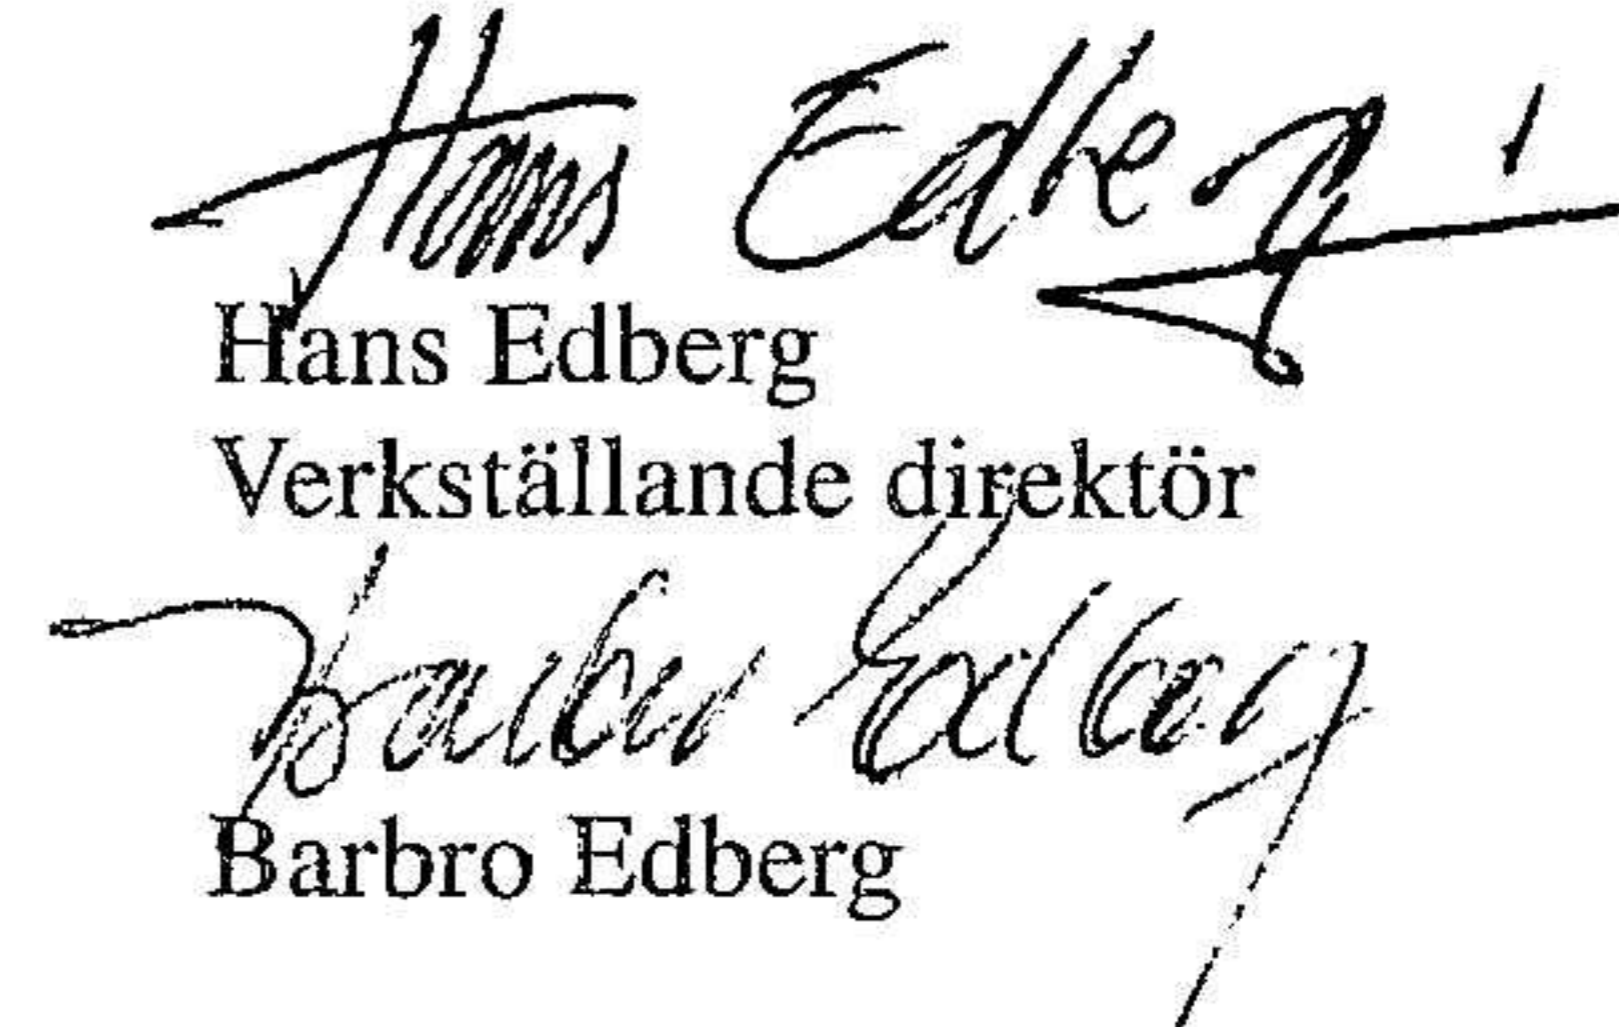 Hans Edberg
Hans Edberg
Verkställande direktör
Barbro Edberg
Barbro Edberg